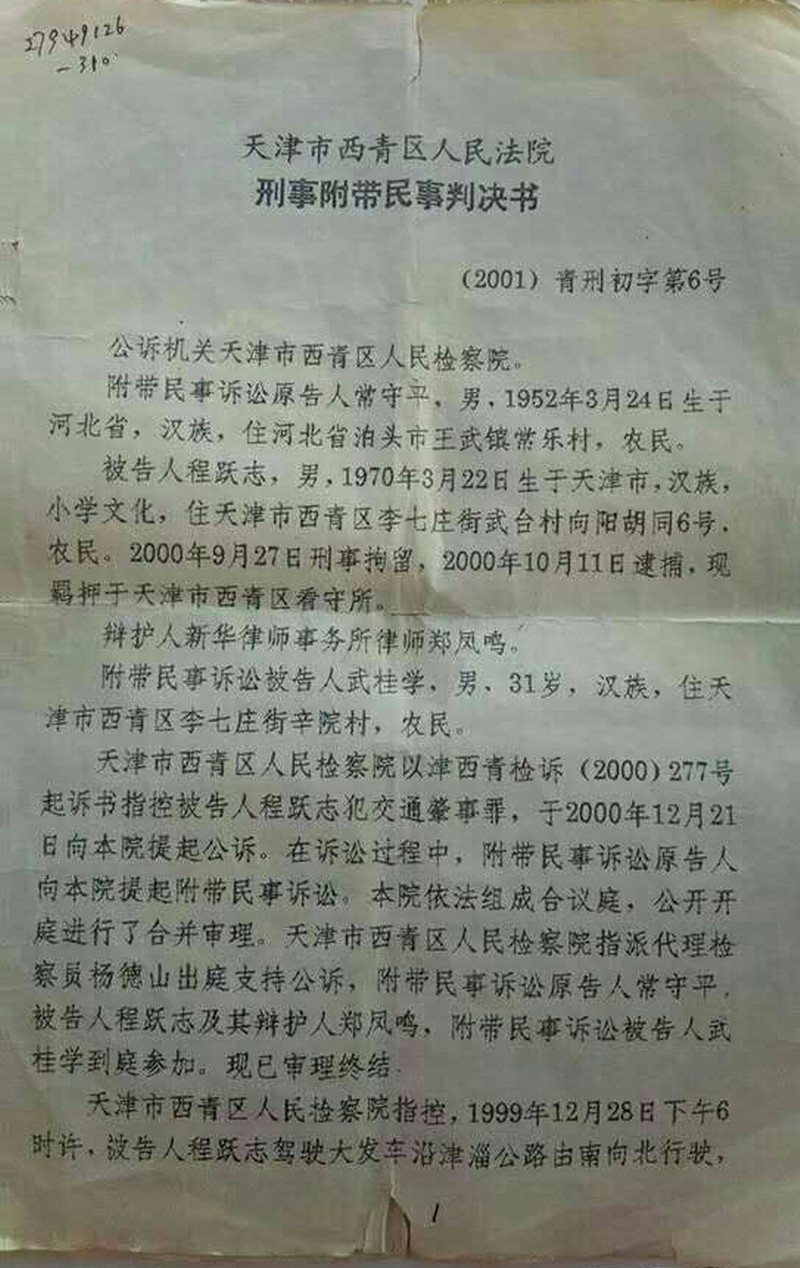 27949126
-310
天津市西青区人民法院
刑事附带民事判决书
(2001) 青刑初字第6号
公诉机关天津市西青区人民检察院。
附带民事诉讼原告人常守平，男，1952年3月24日生于
河北省，汉族，住河北省泊头市王武镇常乐村，农民。
被告人程跃志，男，1970年3月22日生于天津市，汉族，
小学文化，住天津市西青区李七庄街武台村向阳胡同6号，
农民。2000年9月27日刑事拘留，2000年10月11日逮捕，现
羁押于天津市西青区看守所。
辩护人新华律师事务所律师郑凤鸣。
附带民事诉讼被告人武桂学、男、31岁，汉族，住天
津市西青区李七庄街辛院村，农民。
天津市西青区人民检察院以津西青检诉 (2000) 277号
起诉书指控被告人程跃志犯交通肇事罪，于2000年12月21
日向本院提起公诉。在诉讼过程中，附带民事诉讼原告人
向本院提起附带民事诉讼。本院依法组成合议庭，公开开
庭进行了合并审理。天津市西青区人民检察院指派代理检
察员杨德山出庭支持公诉，附带民事诉讼原告人常守平，
被告人程跃志及其辩护人郑凤鸣，附带民事诉讼被告人武
桂学到庭参加。现已审理终结.
天津市西青区人民检察院指控，1999年12月28日下午6
时许，被告人程跃志驾驶大发车沿津淄公路由南向北行驶，
1